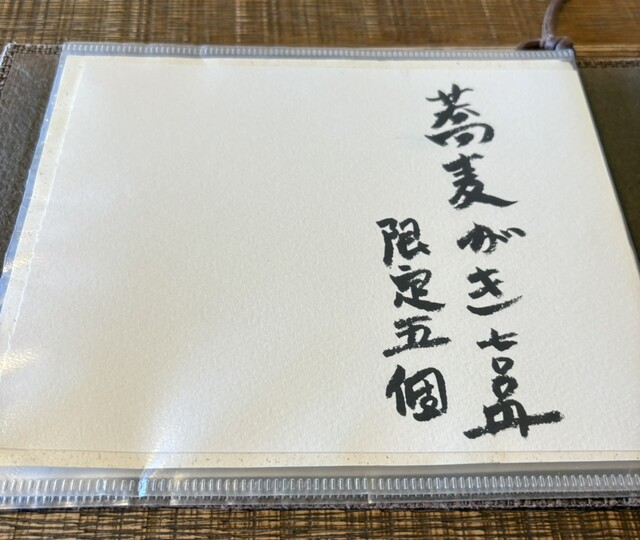 蕎麦がき七〇〇円
限定五個